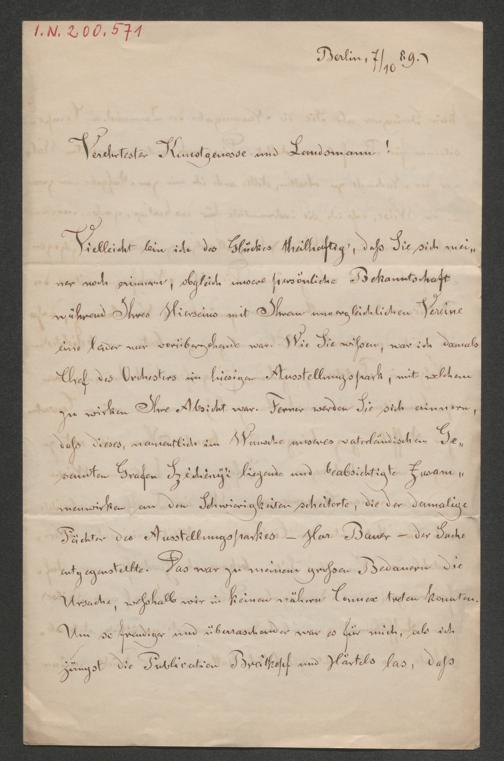 I.N. 200.571
Berlin, 7/10 89.
Verehrtester Kunstgenosse und Landsmann!
Vielleicht bin ich des Glückes theilhaftig, daß Sie sich mei„
ner noch erinnern, obgleich unsere persönliche Bekanntschaft
während Ihres Hierseins mit Ihrem unvergleichlichen Vereine
eine leider nur vorübergehende war. Wie Sie wißen, war ich damals
Chef des Orchesters im hiesigen Ausstellungspark, mit welchem
zu wirken Ihre Absicht war. Ferner werden Sie sich erinnern,
daß dieses, namentlich im Wunsche unseres vaterländischen Ge„
sandten Grafen Széchényi liegende und beabsichtigte Zusam„
menwirken an den Schwierigkeiten scheiterte, die der damalige
Pächter des Ausstellungsparkes – Herr Bauer – der Sache
entgegenstellte. Das war zu meinem großen Bedauern die
Ursache, weßhalb wir in keinen nähern Connex treten konnten.
Um so freudiger und überraschender war es für mich, als ich
jüngst die Publication Breitkopf und Härtels las, daß